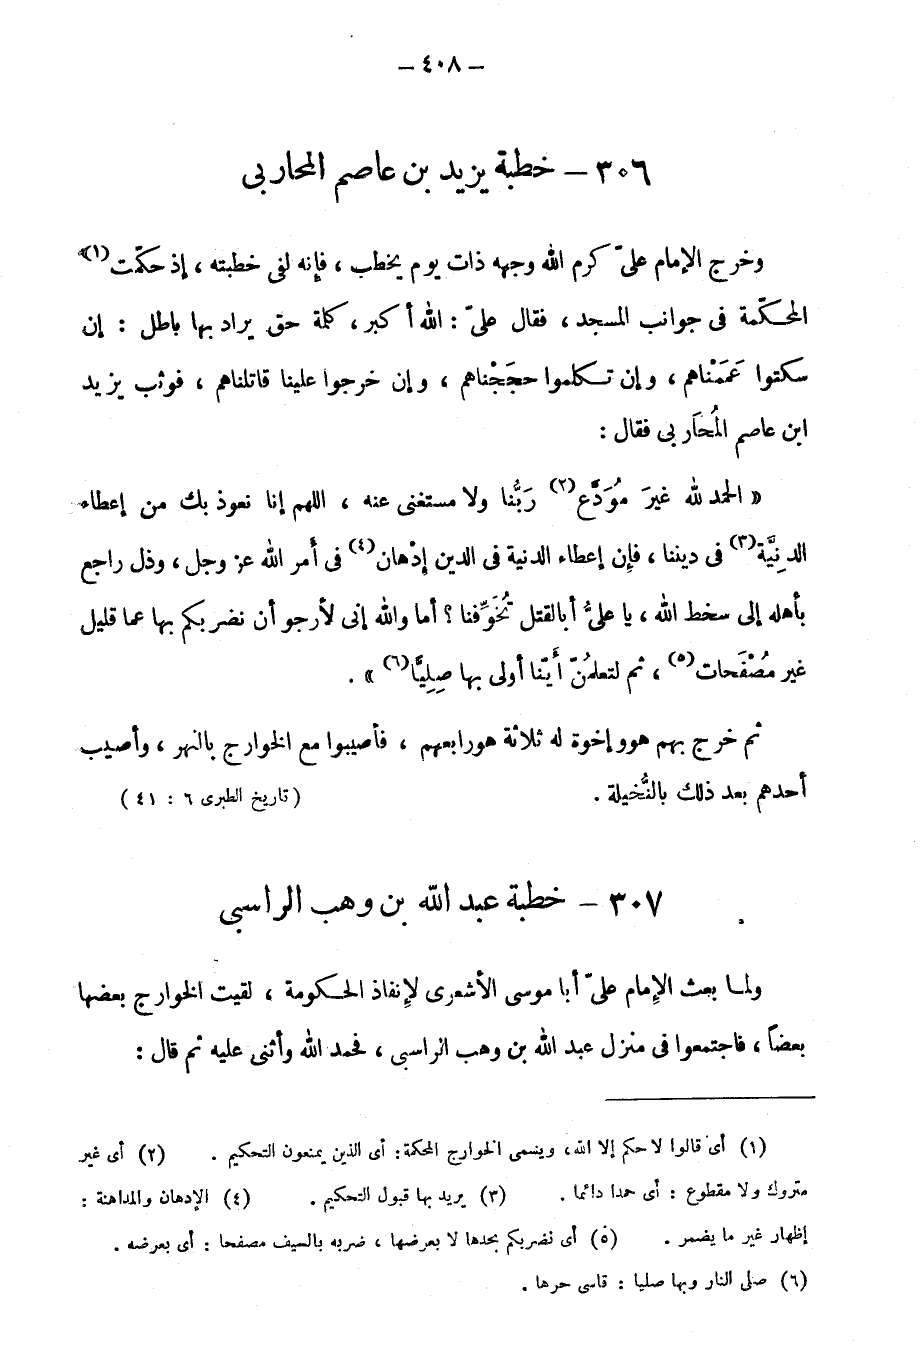 — ٤٠٨ —
٣٠٦ — خطبة يزيد بن عاصم المحاربى
وخرج الإمام علىّ كرم الله وجهه ذات يوم يخطب ، فإنه لفى خطبته ، إذ حكّمت(١)
المحكّمة فى جوانب المسجد ، فقال علىّ : الله أكبر ، كلمة حق يراد بها باطل : إن
سكتوا عَمَمْناهم ، وإن تكلموا حجَجْناهم ، وإن خرجوا علينا قاتلناهم ، فوثب يزيد
ابن عاصم المُحَاربى فقال :
« الحمد لله غيرَ مُوَدَّع(٢) رَبُّنا ولا مستغنى عنه ، اللهم إنا نعوذ بك من إعطاء
الدنِيَّة(٣) فى ديننا ، فإن إعطاء الدنية فى الدين إدْهان(٤) فى أمر الله عز وجل ، وذل راجع
بأهله إلى سخط الله ، يا علىُّ أبالقتل تُخَوِّفنا ؟ أما والله إنى لأرجو أن نضربكم بها عما قليل
غير مُصْفَحات(٥) ، ثم لتعلمُنّ أَيّنا أولى بها صِلِيًّا(٦) » .
ثم خرج بهم هو وإخوة له ثلاثة هو رابعهم ، فأصيبوا مع الخوارج بالنهر ، وأصيب
أحدهم بعد ذلك بالنُّخيلة . ( تاريخ الطبرى ٦ : ٤١ )
٣٠٧ — خطبة عبد الله بن وهب الراسبى
ولما بعث الإمام علىّ أبا موسى الأشعرى لإنفاذ الحكومة ، لقيت الخوارج بعضها
بعضاً ، فاجتمعوا فى منزل عبد الله بن وهب الراسبى ، فحمد الله وأثنى عليه ثم قال :
(١) أى قالوا لا حكم إلا الله ، ويسمى الخوارج المحكمة : أى الذين يمنعون التحكيم . (٢) أى غير
متروك ولا مقطوع : أى حمدا دائما . (٣) يريد بها قبول التحكيم . (٤) الإدهان والمداهنة :
إظهار غير ما يضمر . (٥) أى نضربكم بحدها لا بعرضها ، ضربه بالسيف مصفحا : أى بعرضه .
(٦) صلى النار وبها صليا : قاسى حرها .